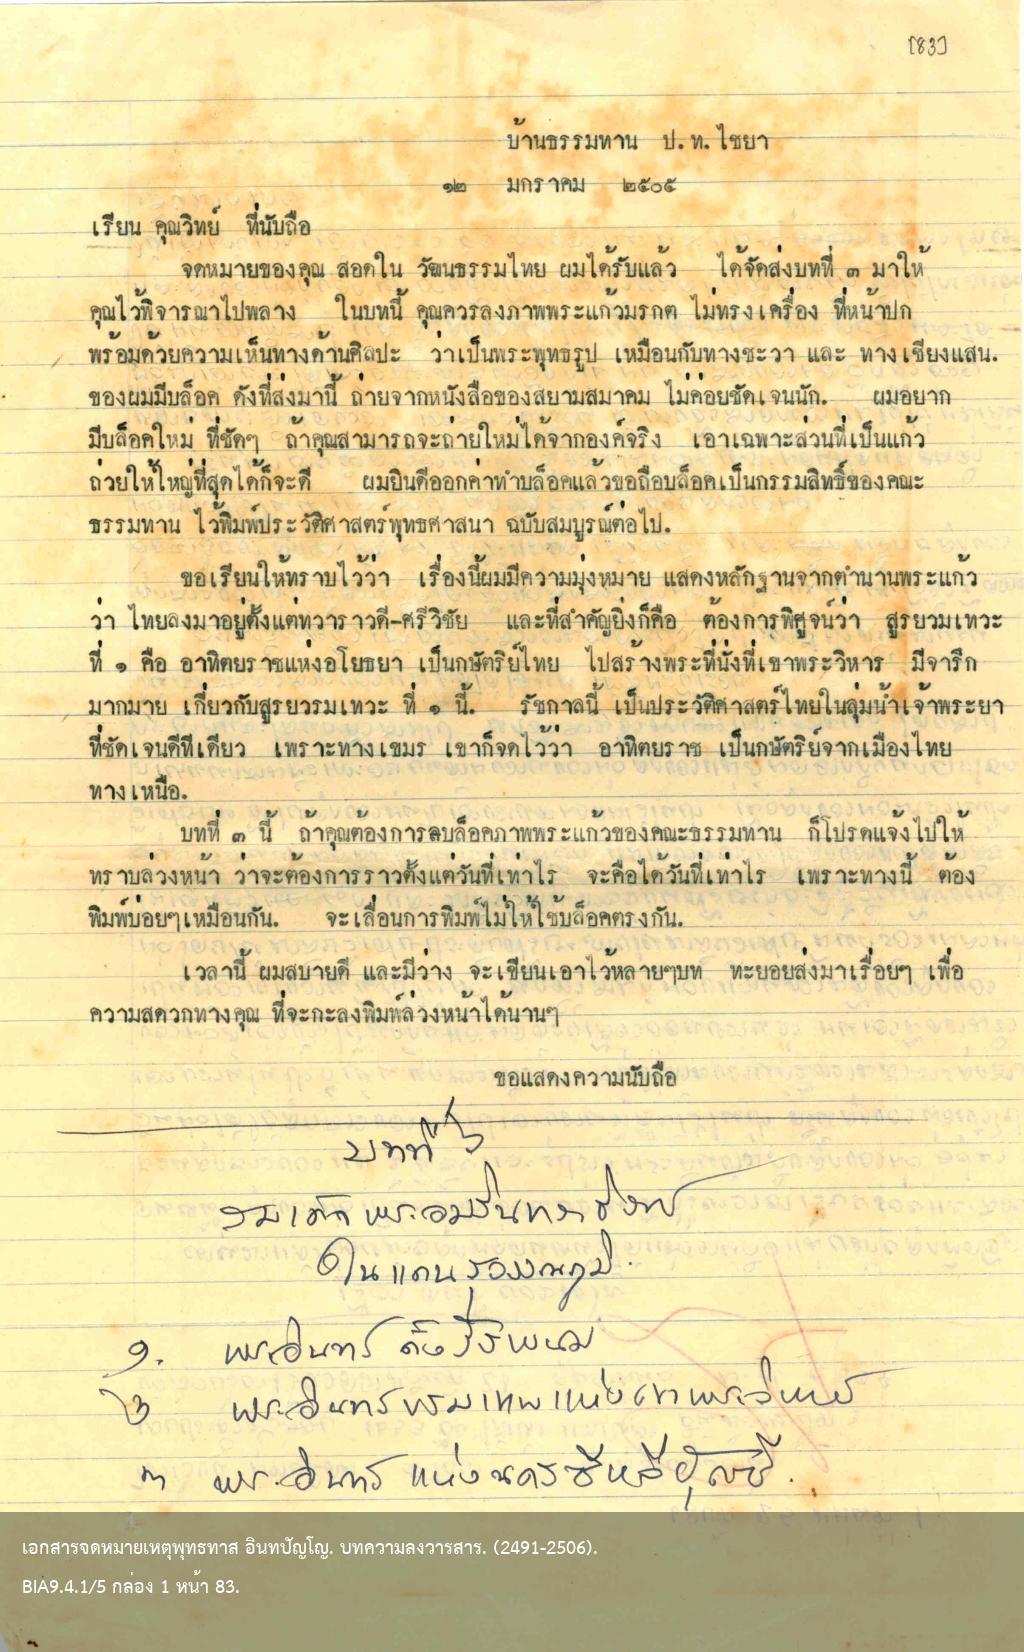 [83]
บ้านธรรมทาน ป.ท.ไชยา
๑๒ มกราคม ๒๕๐๕
เรียน คุณวิทย์ ที่นับถือ
จดหมายของคุณ สอดใน วัฒนธรรมไทย ผมได้รับแล้ว ได้จัดส่งบทที่ ๓ มาให้
คุณไว้พิจารณาไปพลาง ในบทนี้ คุณควรลงภาพพระแก้วมรกต ไม่ทรงเครื่อง ที่หน้าปก
พร้อมด้วยความเห็นทางด้านศิลปะ ว่าเป็นพระพุทธรูป เหมือนกับทางชะวา และ ทางเชียงแสน.
ของผมมีบล็อค ดังที่ส่งมานี้ ถ่ายจากหนังสือของสยามสมาคม ไม่ค่อยชัดเจนนัก. ผมอยาก
มีบล็อคใหม่ ที่ชัดๆ ถ้าคุณสามารถจะถ่ายใหม่ได้จากองค์จริง เอาเฉพาะส่วนที่เป็นแก้ว
ถ่วยให้ใหญ่ที่สุดได้ก็จะดี ผมยินดีออกค่าทำบล็อคแล้วขอถือบล็อคเป็นกรรมสิทธิ์ของคณะ
ธรรมทาน ไว้พิมพ์ประวัติศาสตร์พุทธศาสนา ฉบับสมบูรณ์ต่อไป.
ขอเรียนให้ทราบไว้ว่า เรื่องนี้ผมมีความมุ่งหมาย แสดงหลักฐานจากตำนานพระแก้ว
ว่า ไทยลงมาอยู่ตั้งแต่ทวาราวดี-ศรีวิชัย และที่สำคัญยิ่งก็คือ ต้องการพิศูจน์ว่า สูรยวมเทวะ
ที่ ๑ คือ อาทิตยราชแห่งอโยธยา เป็นกษัตริย์ไทย ไปสร้างพระที่นั่งที่เขาพระวิหาร มีจารึก
มากมาย เกี่ยวกับสูรยวรมเทวะ ที่ ๑ นี้. รัชกาลนี้ เป็นประวัติศาสตร์ไทยในลุ่มน้ำเจ้าพระยา
ที่ชัดเจนดีทีเดียว เพราะทางเขมร เขาก็จดไว้ว่า อาทิตยราช เป็นกษัตริย์จากเมืองไทย
ทางเหนือ.
บทที่ ๓ นี้ ถ้าคุณต้องการลบล็อคภาพพระแก้วของคณะธรรมทาน ก็โปรดแจ้งไปให้
ทราบล่วงหน้า ว่าจะต้องการราวตั้งแต่วันที่เท่าไร จะคือได้วันที่เท่าไร เพราะทางนี้ ต้อง
พิมพ์บ่อยๆเหมือนกัน. จะเลื่อนการพิมพ์ไม่ให้ใช้บล็อคตรงกัน.
เวลานี้ ผมสบายดี และมีว่าง จะเขียนเอาไว้หลายๆบท ทะยอยส่งมาเรื่อยๆ เพื่อ
ความสดวกทางคุณ ที่จะกะลงพิมพ์ล่วงหน้าได้นานๆ
ขอแสดงความนับถือ
บทที่
พระอมรินทรา
ในแดนสุวรรณภูมิ.
๑. พระอินทร์
๒ พระอินทร์ แห่งเขาพระวิหาร
๓ พระอินทร์ แห่งนคร
เอกสารจดหมายเหตุพุทธทาส อินทปัญโญ. บทความลงวารสาร. (2491-2506).
BIA9.4.1/5 กล่อง 1 หน้า 83.